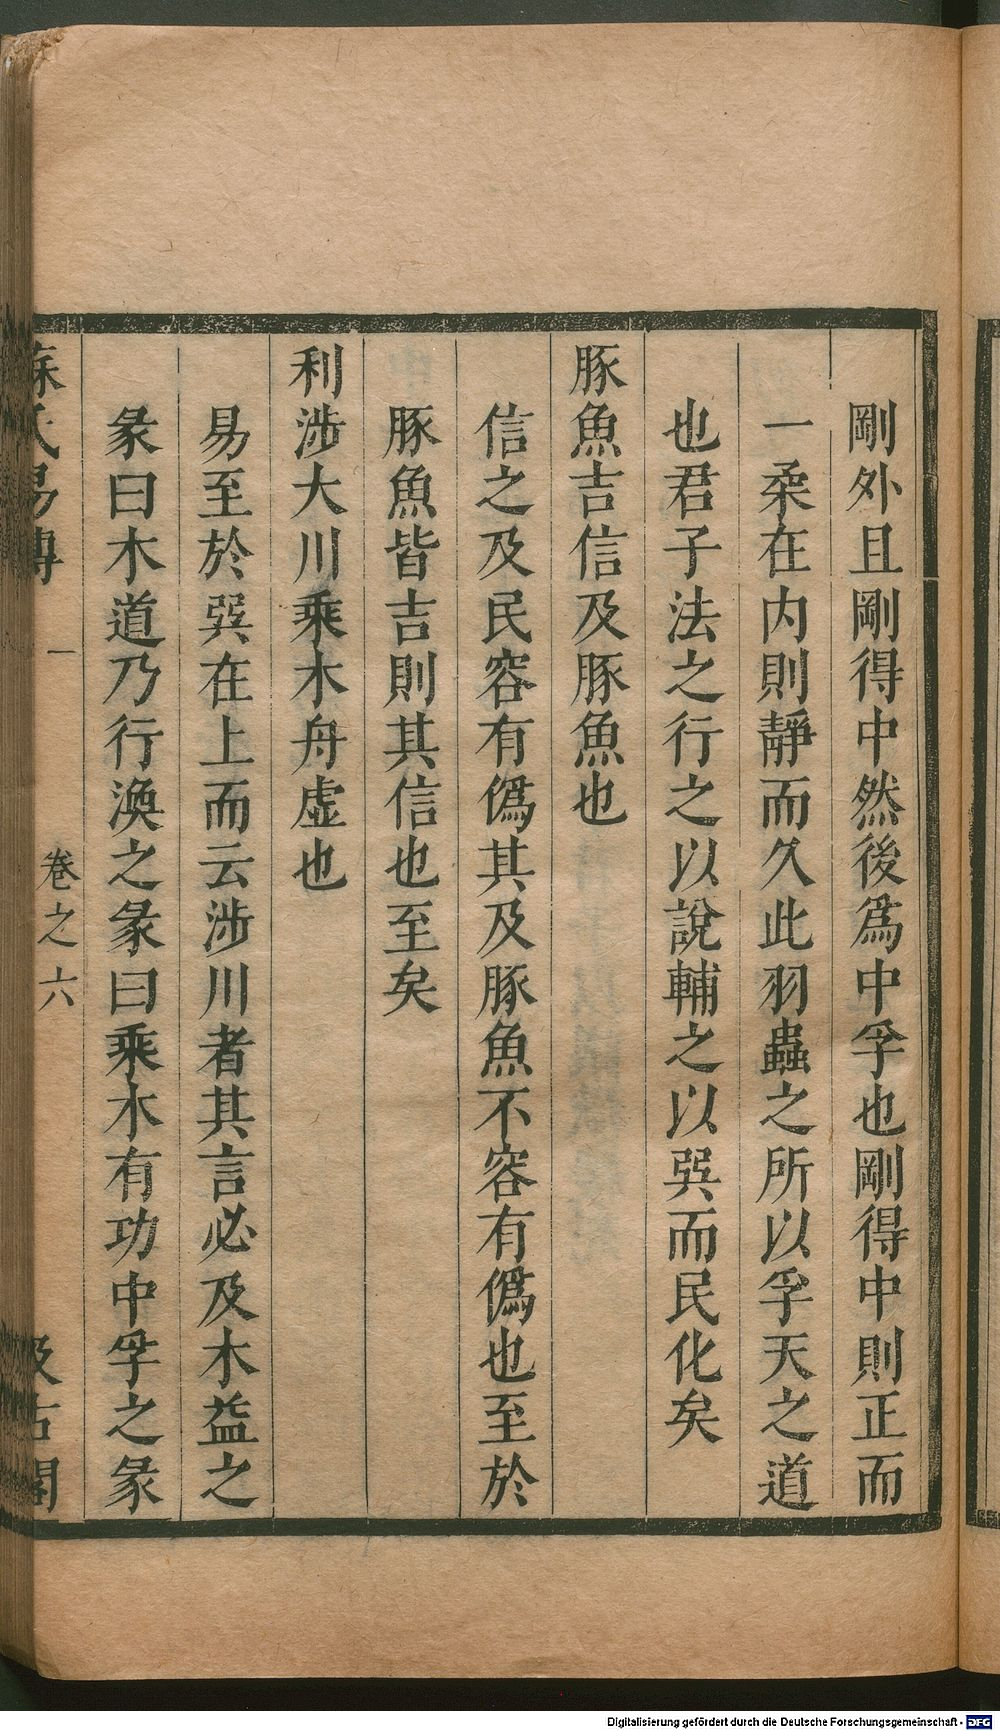 剛外且剛得中然後爲中孚也剛得中則正而
一柔在内則靜而久此羽蟲之所以孚天之道
也君子法之行之以說輔之以巽而民化矣
豚魚吉信及豚魚也
信之及民容有僞其及豚魚不容有僞也至於
豚魚皆吉則其信也至矣
利涉大川乘木舟虛也
易至於巽在上而云涉川者其言必及木益之
彖曰木道乃行渙之彖曰乘木有功中孚之彖
蘇氏易傳 一 卷之六 汲古閣
Digitalisierung gefördert durch die Deutsche Forschungsgemeinschaft - DFG